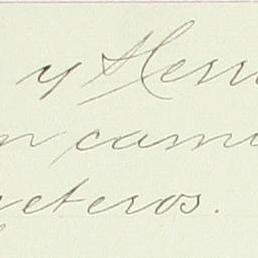 y Herr
n cami
eteros.